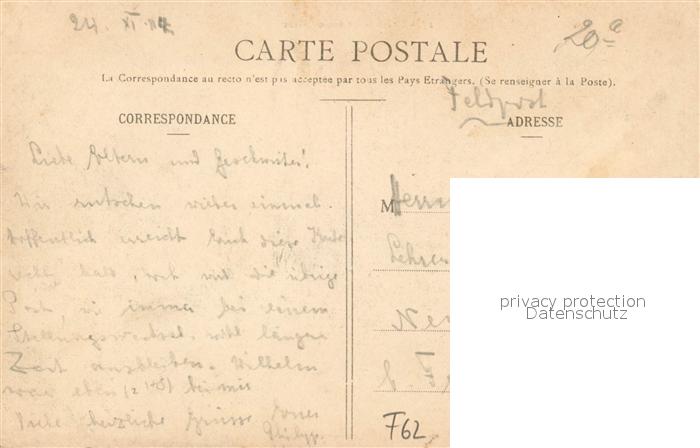 24. XI. 14.
20 a
CARTE POSTALE
La Correspondance au recto n'est pas acceptée par tous les Pays Etrangers. (Se renseigner à la Poste).
Feldpost
CORRESPONDANCE
ADRESSE
Liebe Eltern und Geschwister!
Wir rutschen wieder einmal.
Hoffentlich erreicht Euch diese Karte
bald, weil die übrige
Post, wie immer bei einem
Stellungswechsel, wohl längere
Zeit ausbleiben. Wilhelm
war eben bei mir
Viele herzliche Grüsse Euer
Philipp.
M Herrn
Lehrer
F62
privacy protection
Datenschutz